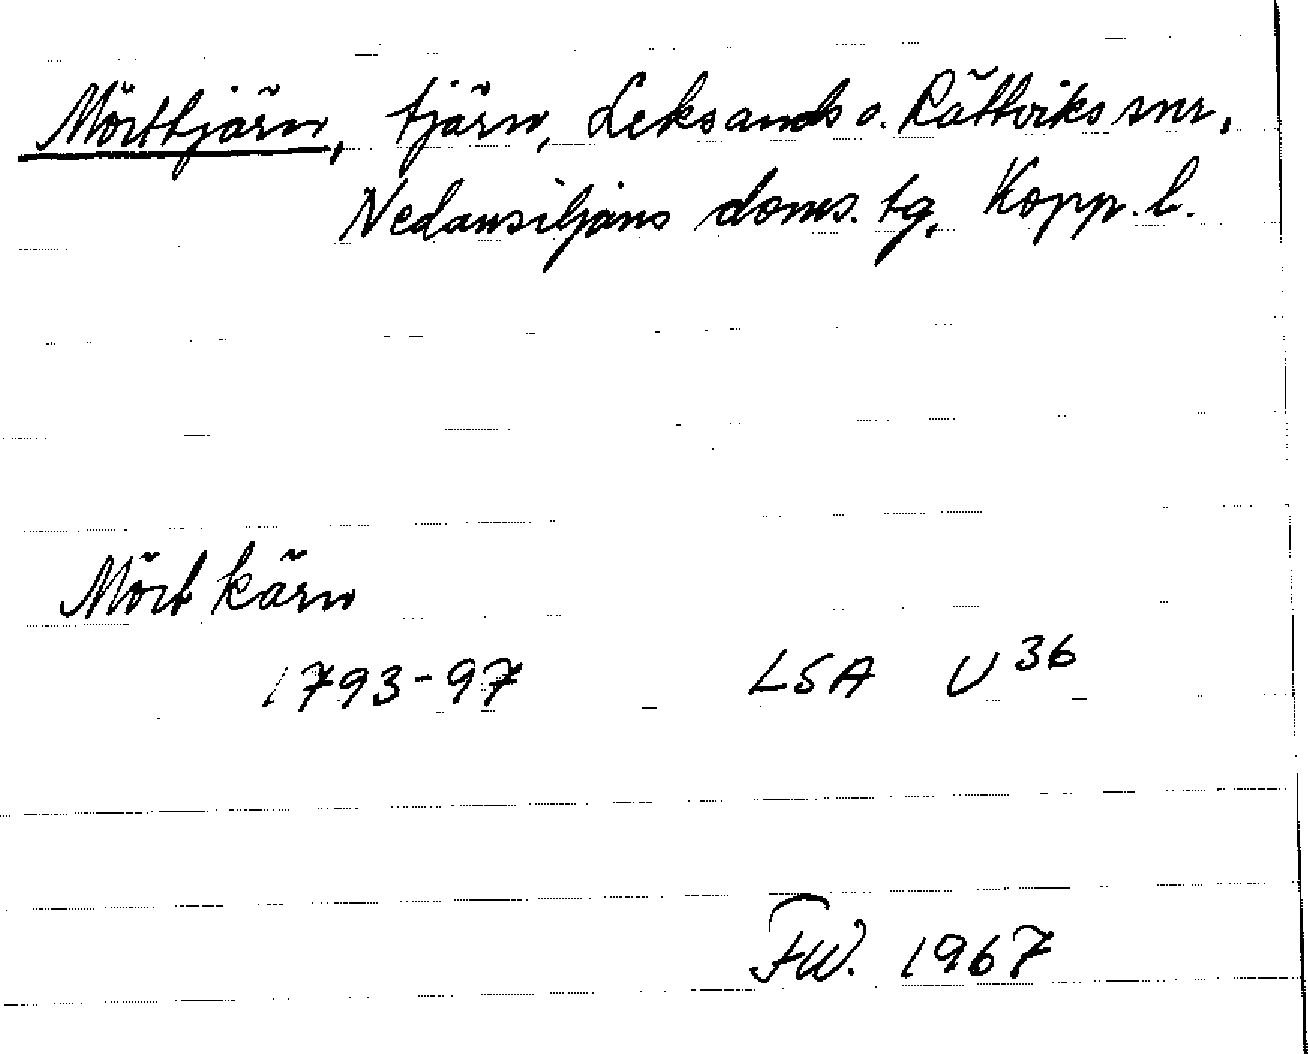 Mörttjärn, tjärn, Leksands o. Rättviks snr,
Nedansiljans doms. tg, Kopp. l.
Mört kärn
1793-97 LSA U 36
FW. 1967